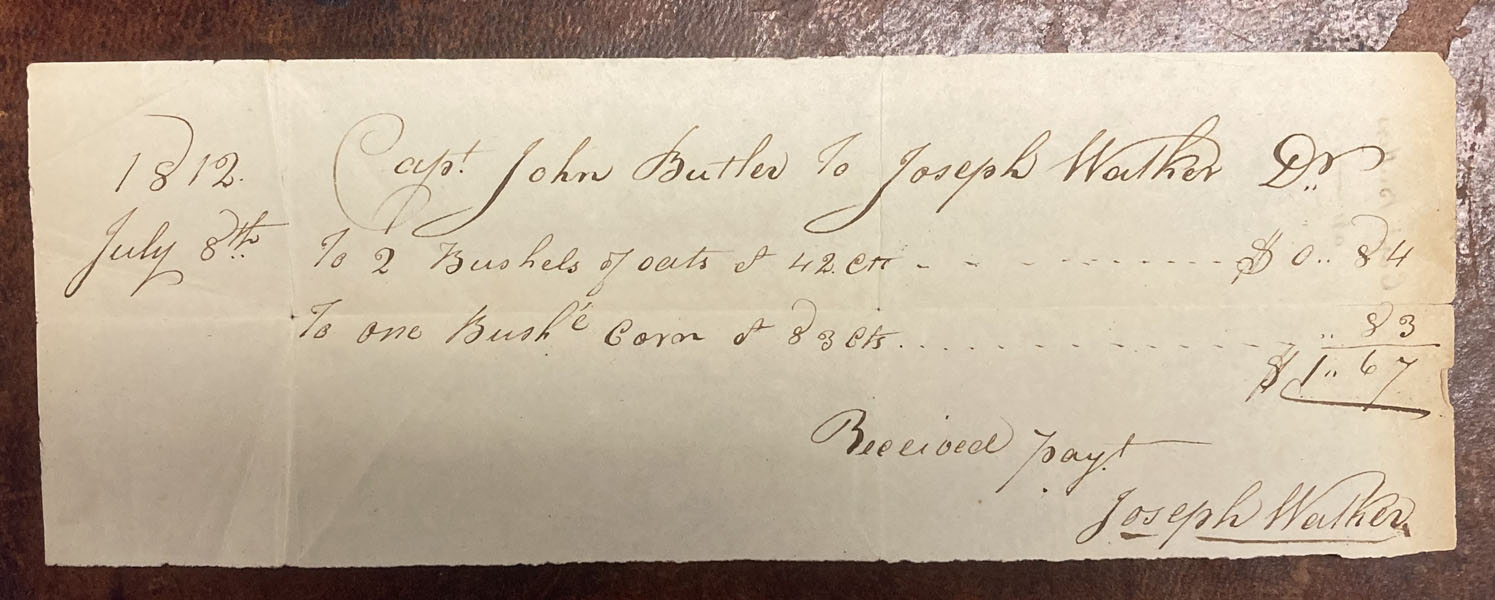 1812. Capt. John Butler To Joseph Walker Dr
July 8th To 2 Bushels of oats @ 42 Cts $ 0.. 84
To one Bushe Corn @ 83 Cts .. 83
$ 1.. 67
Received payt.
Joseph Walker